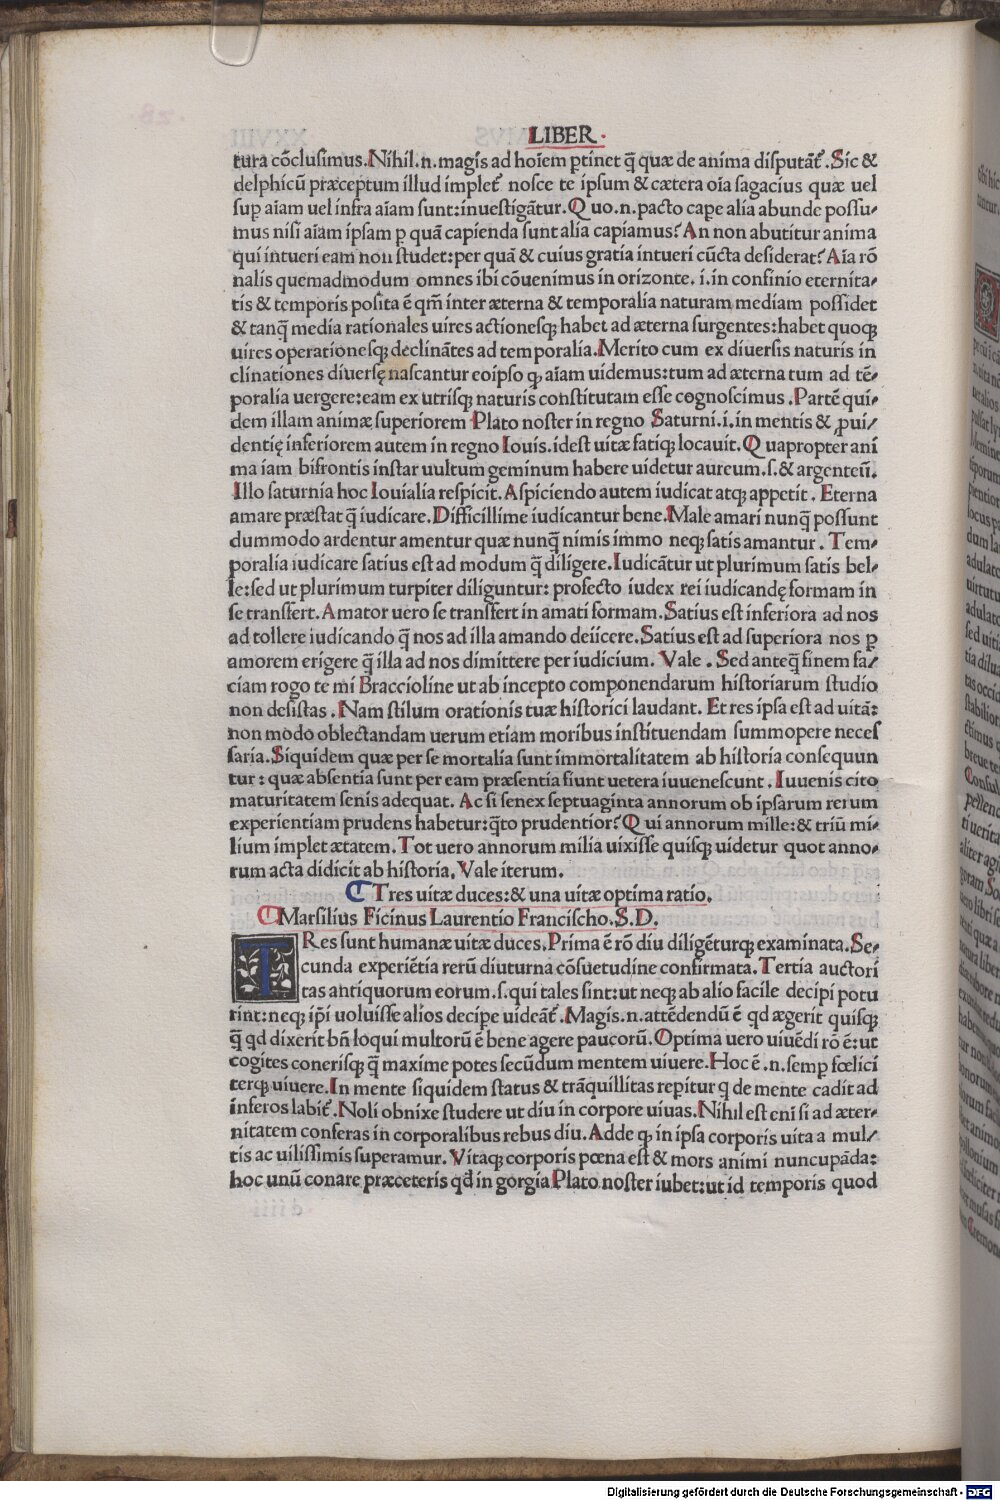 LIBER
tura cōclusimus. Nihil .n. magis ad hoīem ꝑtinet q̄ quæ de anima disputāt̃. Sic &
delphicū præceptum illud implet̃ nosce te ipsum & cætera oīa sagacius quæ uel
sup̱ aīam uel infra aīam sunt: inuestigātur. Quo .n. pacto cape alia abunde possu⸗
mus nisi aīam ipsam ꝑ quā capienda sunt alia capiamus? An non abutitur anima
qui intueri eam non studet: per quā & cuius gratia intueri cūcta desiderat? Aīa rō
nalis quemadmodum omnes ibi cōuenimus in orizonte .i. in confinio eternita⸗
tis & temporis posita ē qm̄ inter æterna & temporalia naturam mediam possidet
& tanq̄ media rationales uires actionesq; habet ad æterna surgentes: habet quoq;
uires operationesq; declinātes ad temporalia. Merito cum ex diuersis naturis in
clinationes diuersę nascantur eoipso ꝙ aīam uidemus: tum ad æterna tum ad tē⸗
poralia uergere: eam ex utrisq; naturis constitutam esse cognoscimus. Partē qui⸗
dem illam animæ superiorem Plato noster in regno Saturni .i. in mentis & ꝓui⸗
dentię inferiorem autem in regno Iouis .idest uitæ fatiq; locauit. Quapropter ani
ma iam bifrontis instar uultum geminum habere uidetur aureum .s. & argenteū.
Illo saturnia hoc Iouialia respicit. Aspiciendo autem iudicat atq; appetit. Eterna
amare præstat q̄ iudicare. Difficillime iudicantur bene. Male amari nunq̄ possunt
dummodo ardentur amentur quæ nunq̄ nimis immo neq; satis amantur. Tem⸗
poralia iudicare satius est ad modum q̄ diligere. Iudicātur ut plurimum satis bel⸗
le: sed ut plurimum turpiter diliguntur: profecto iudex rei iudicandę formam in
se transfert. Amator uero se transfert in amati formam. Satius est inferiora ad nos
ad tollere iudicando q̄ nos ad illa amando deiicere. Satius est ad superiora nos ꝑ
amorem erigere q̄ illa ad nos dimittere per iudicium. Vale. Sed anteq̄ finem fa⸗
ciam rogo te mi Braccioline ut ab incepto componendarum historiarum studio
non desistas. Nam stilum orationis tuæ historici laudant. Et res ipsa est ad uitā:
non modo oblectandam uerum etiam moribus instituendam summopere neces
saria. Siquidem quæ per se mortalia sunt immortalitatem ab historia consequun
tur: quæ absentia sunt per eam præsentia fiunt uetera iuuenescunt. Iuuenis cito
maturitatem senis adequat. Ac si senex septuaginta annorum ob ipsarum rerum
experientiam prudens habetur: q̄to prudentior? Qui annorum mille: & triū mi⸗
lium implet ætatem. Tot uero annorum milia uixisse quisq; uidetur quot anno⸗
rum acta didicit ab historia. Vale iterum.
Tres uitæ duces: & una uitæ optima ratio.
Marsilius Ficinus Laurentio Francischo. S. D.
TRes sunt humanæ uitæ duces. Prima ē rō diu diligēturq; examinata. Se⸗
cunda experiētia rerū diuturna cōsuetudine confirmata. Tertia auctori
tas antiquorum eorum .s. qui tales sint: ut neq; ab alio facile decipi potu
rint: neq; ip̄i uoluisse alios decipe uideāt̃. Magis .n. attēdendū ē qd ægerit quisq;
q̄ qd dixerit bn̄ loqui multorū ē bene agere paucorū. Optima uero uiuēdi rō ē: ut
cogites conerisq; q̄ maxime potes secūdum mentem uiuere. Hoc ē .n. semꝑ fœlici
terq; uiuere. In mente siquidem status & trāquillitas reꝑitur q de mente cadit ad
inferos labit̃. Noli obnixe studere ut diu in corpore uiuas. Nihil est eni si ad æter⸗
nitatem conferas in corporalibus rebus diu. Adde ꝙ in ipsa corporis uita a mul⸗
tis ac uilissimis superamur. Vitaq; corporis pœna est & mors animi nuncupāda:
hoc unū conare præceteris qd̄ in gorgia Plato noster iubet: ut id temporis quod
Digitalisierung gefördert durch die Deutsche Forschungsgemeinschaft - DFG